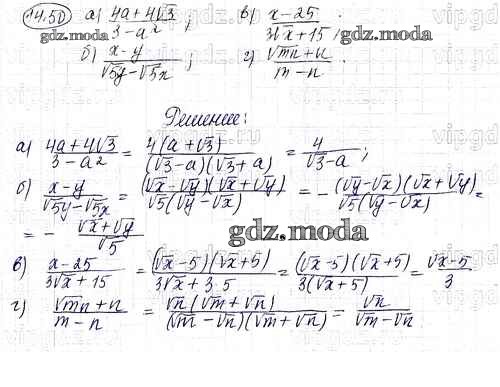 14.50 а) (4a+4√3)/(3-a²); в) (x-25)/(3√x+15);
б) (x-y)/(√5y-√5x); г) (√mn+n)/(m-n).
gdz.moda gdz.moda
gdz.moda
Решение:
а) (4a+4√3)/(3-a²) = 4(a+√3)/((√3-a)(√3+a)) = 4/(√3-a);
б) (x-y)/(√5y-√5x) = (√x-√y)(√x+√y)/(√5(√y-√x)) = -(√y-√x)(√x+√y)/(√5(√y-√x)) =
= - (√x+√y)/√5
gdz.moda
в) (x-25)/(3√x+15) = (√x-5)(√x+5)/(3√x+3·5) = (√x-5)(√x+5)/(3(√x+5)) = (√x-5)/3
г) (√mn+n)/(m-n) = √n(√m+√n)/((√m-√n)(√m+√n)) = √n/(√m-√n)